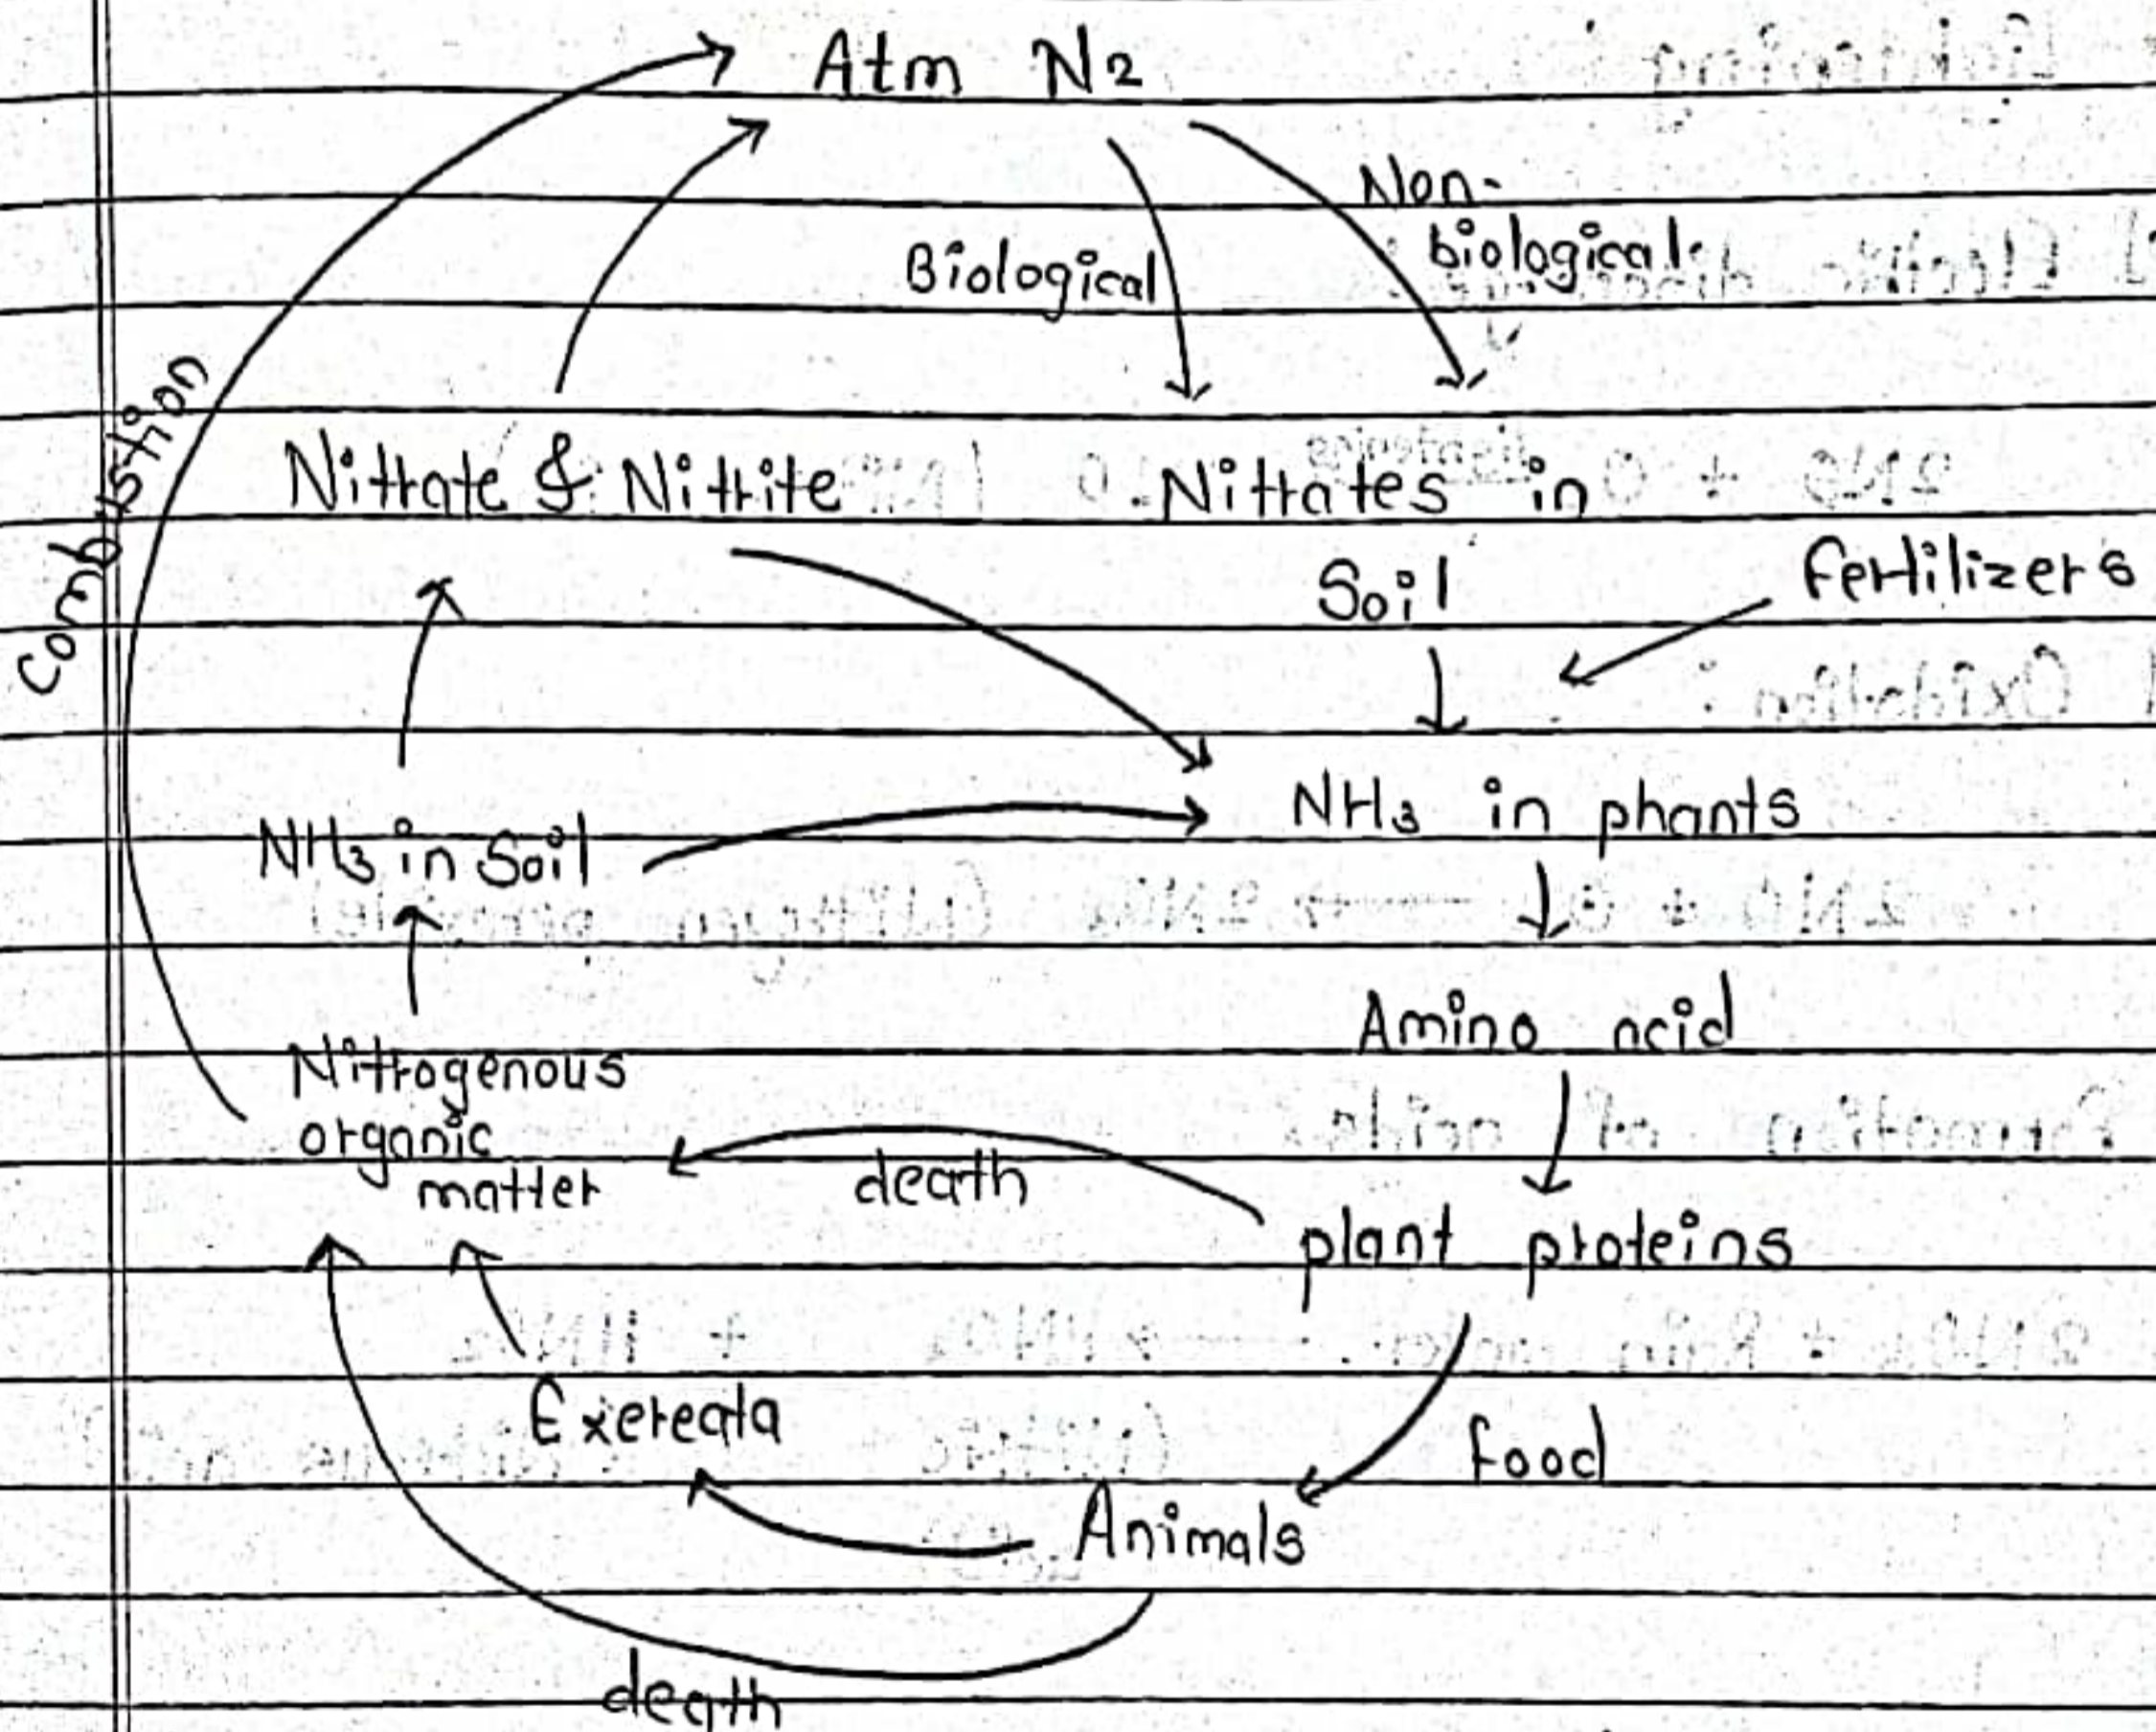 Atm N2
Non-
biological
Biological
Combustion
Nitrate & Nitrite
Nitrates in
Soil
Fertilizers
NH3 in phants
NH3 in Soil
Amino acid
Nitrogenous
organic
matter
death
plant proteins
Exereata
food
Animals
death